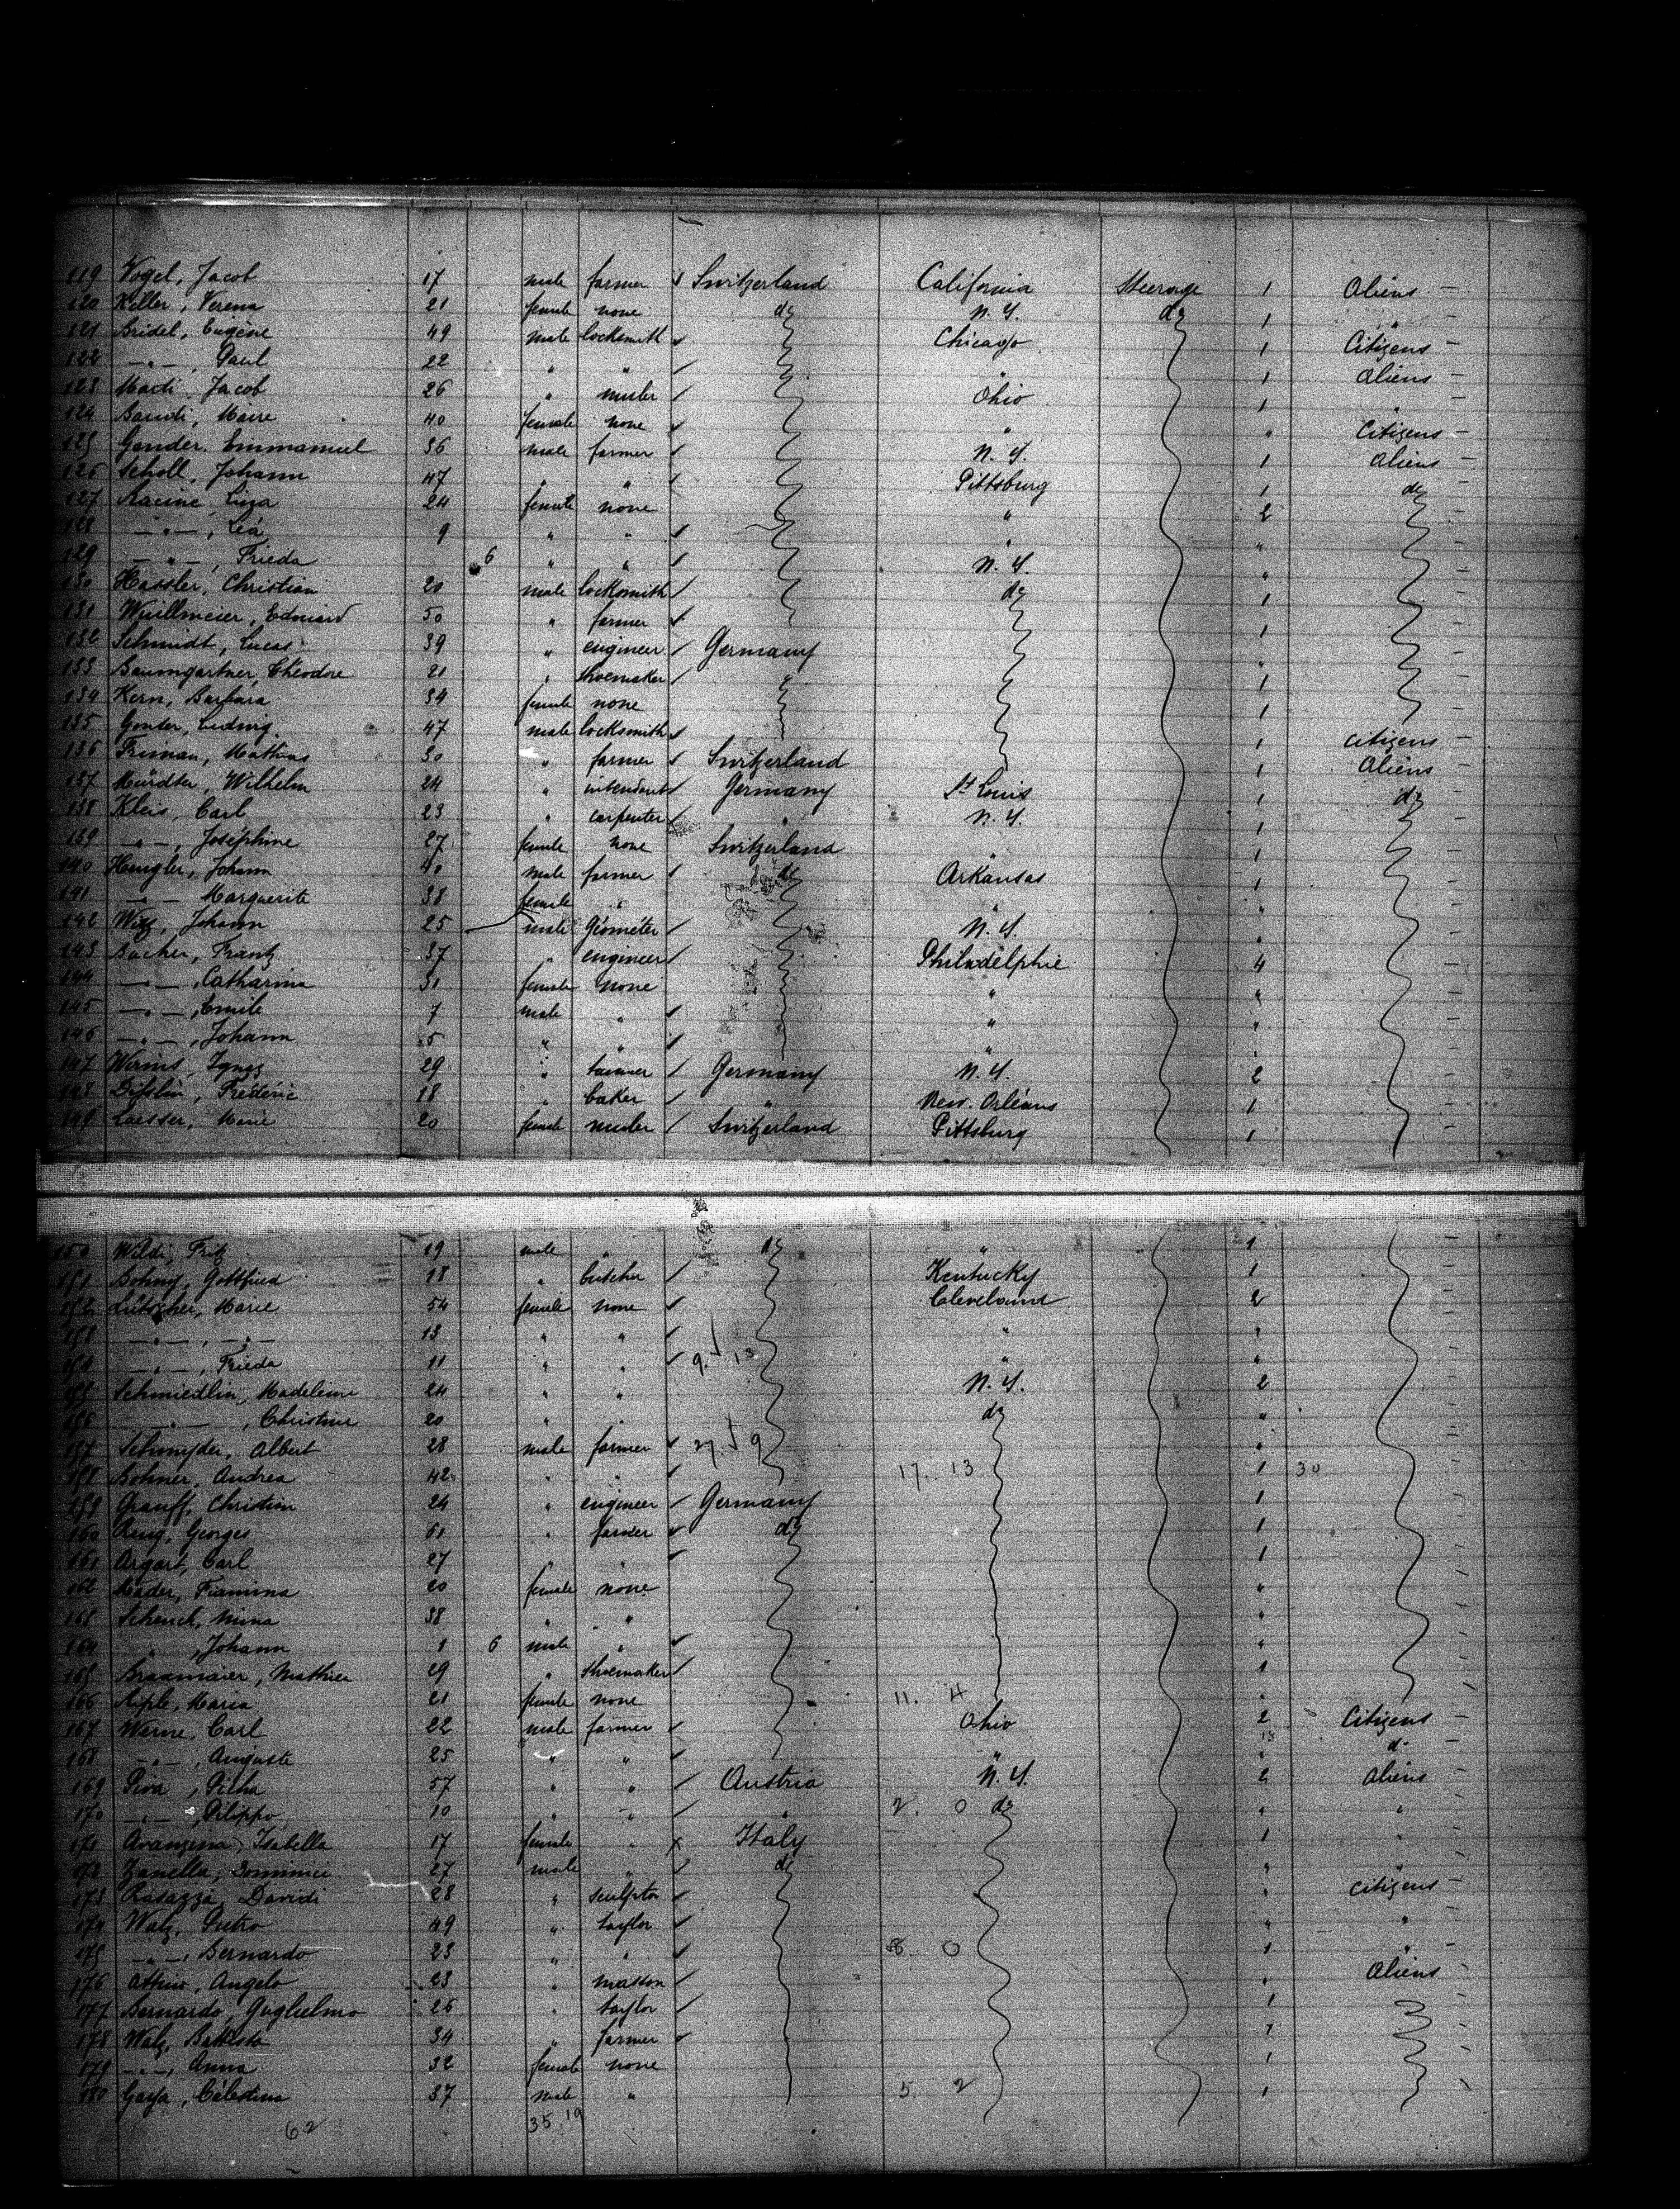 119 Vogel, Jacob 17 male farmer Switzerland California Steerage 1 Aliens -
120 Keller, Verena 21 female none do N. Y. do 1 "
121 Bridel, Eugène 49 male locksmith Chicago 1 Citizens -
122 -"-, Paul 22 " " " 1 Aliens -
123 Marti, Jacob 26 " miller Ohio 1 "
124 Marie 40 female none " " Citizens -
125 Gander. Emmanuel 36 male farmer N. Y. 1 Aliens -
126 Scholl, Johann 47 " " Pittsburg 1 do
127 Racine, Liza 24 female none " 2
128 -"-, Léa 9 " " " "
129 -"-, Frieda 6 " " N. Y. "
130 Hassler, Christian 20 male locksmith do 1
131 Wüillmeier, Edouard 50 " farmer 1
132 Schmidt, Lucas 39 " engineer Germany "
133 Baumgartner, Théodore 21 " shoemaker " 1
134 Kern, Barbara 34 female none 1
135 Gonter, Ludwig 47 male locksmith 1 Citizens -
136 Mathias 30 " farmer Switzerland 1 Aliens -
137 Mürdter, Wilhelm 24 " intendant Germany St Louis 1 do
138 Kleis, Carl 23 " carpenter " N. Y. 1
139 -"-, Joséphine 27 female none Switzerland " 1
140 Hengler, Johann 40 male farmer do Arkansas 1
141 -"- Marguerite 38 female " " "
142 Witz, Johann 25 male géometer N. Y. "
143 Bucher, Frantz 37 " engineer Philadelphie 4
144 -"-, Catharina 31 female none " "
145 -"-, Emile 7 male " " "
146 -"-, Johann 5 " " " "
147 Ignaz 29 " tanner Germany N. Y. 2
148 Frédéric 18 " baker " New. Orléans 1
149 Laesser, Marie 20 female miller Switzerland Pittsburg 1
150 Wildi, Fritz 19 male " do " 1
151 Bohny, Gottfried 18 " butcher Kentucky 1
152 Lütscher, Marie 54 female none Cleveland 2
153 -"-, -"- 13 " " " "
154 -"-, Frieda 11 " " 9. 13 " "
155 Schmiedlin, Madeleine 24 " " N. Y. 2
156 -"-, Christine 20 " " do "
157 Schnyder, Albert 28 male farmer 27. 9 "
158 Bohner, Andrea 42 " " 17. 13 1 30
159 Grauff, Christian 24 " engineer Germany 1
160 Georges 61 " farmer do 1
161 Argart, Carl 27 " " 1
162 20 female none "
163 Schenck, Mina 38 " " "
164 -"-, Johann 1 6 male " "
165 Braxmaier, Mathieu 29 " shoemaker 1
166 Riple, Maria 21 female none 11. 4 "
167 Werne, Carl 22 male farmer Ohio 2 Citizens -
168 -"-, Auguste 25 " " " 13 do -
169 57 " " Austria N. Y. 2 Aliens -
170 -"-, Pilippo 10 " " " 2. 0 do " "
171 Avanzena, Isabella 17 female " x Italy 1 "
172 Zanella, Dominici 27 male " do " "
173 Davidi 28 " sculptor " Citizens -
174 Walz, Pietro 49 " taylor " "
175 -"-, Bernardo 23 " " 8. 0 1 "
176 Angelo 23 " masson " Aliens -
177 Bernardo, Guglielmo 26 " taylor 1
178 Walz, Battista 34 " farmer 1
179 -"-, Anna 32 female none 1
180 Célestina 37 male " 5. 2 1
62 35. 19